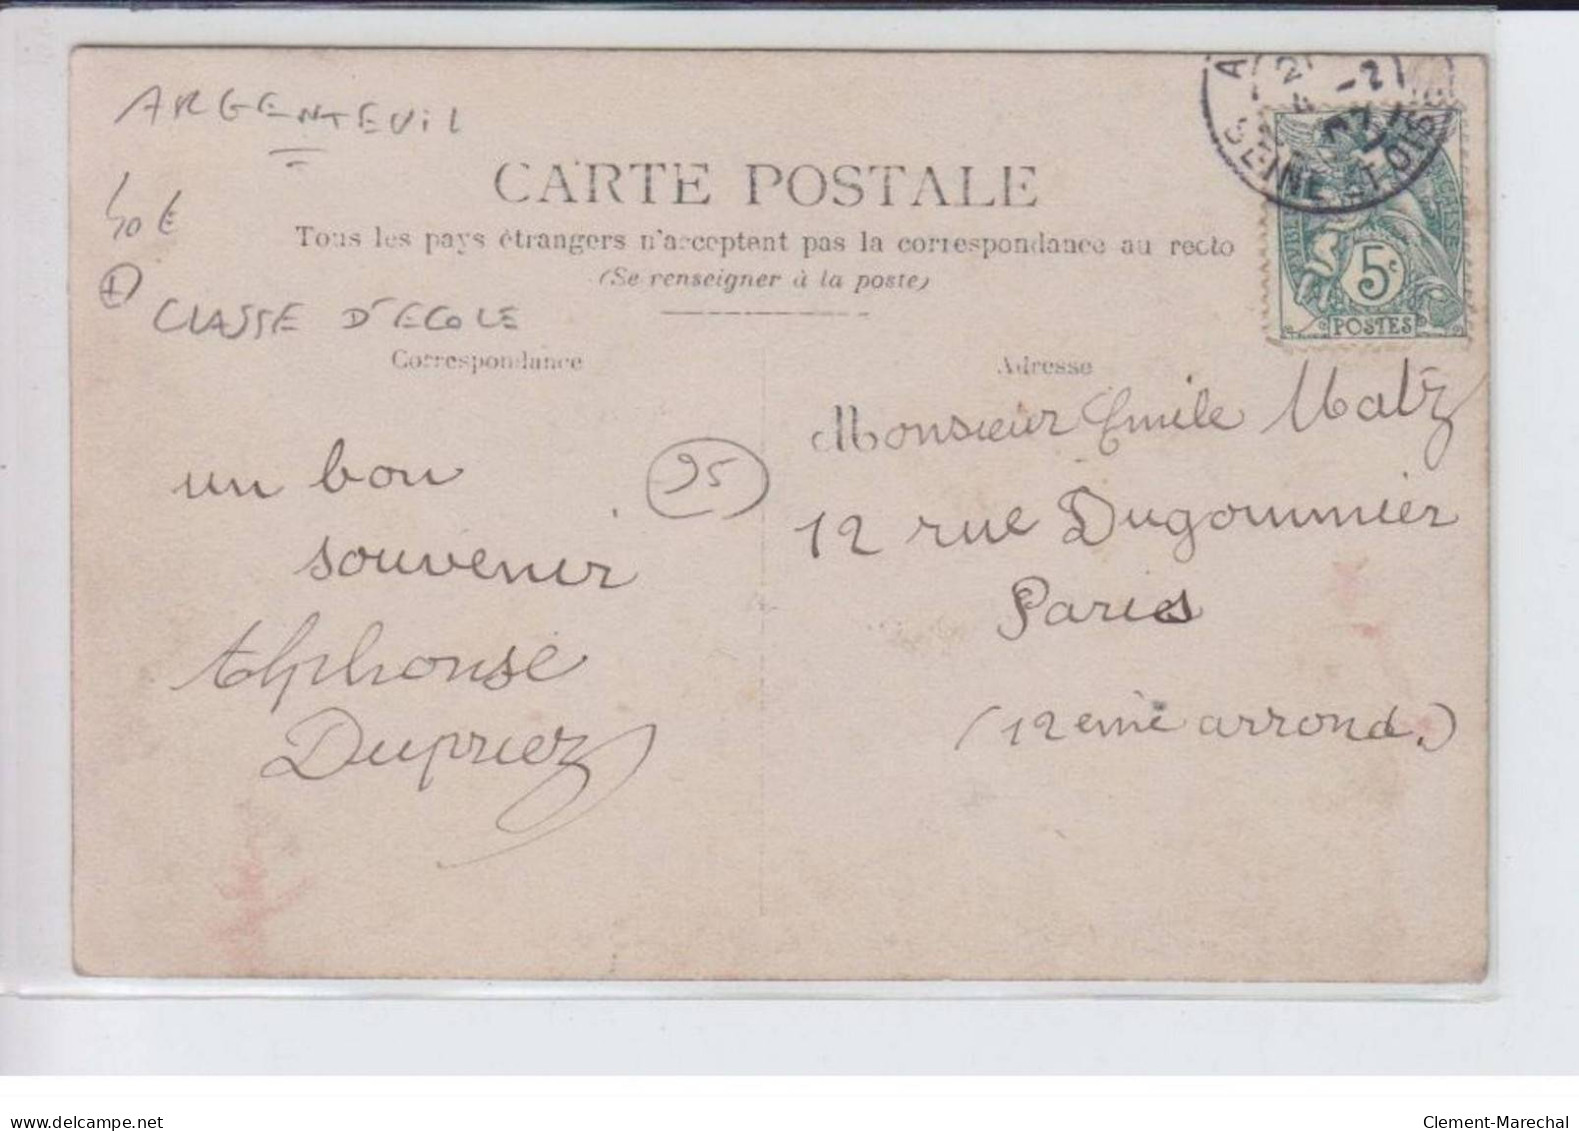 ARGENTEUIL
CARTE POSTALE
Tous les pays étrangers n'acceptent pas la correspondance au recto
(Se renseigner à la poste)
CLASSE D'ECOLE
Correspondance
Adresse
5c
POSTES
SEINE ET OISE
95
un bon
souvenir
Alphonse
Dupriez
Monsieur Emile Matz
12 rue Dugommier
Paris
(12eme arrond.)
www.delcampe.net
Clement-Marechal